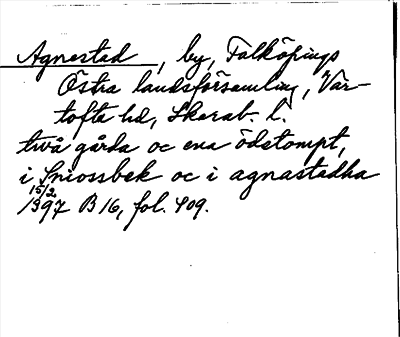 Agnestad, by, Falköpings
Östra landsförsamling, Var-
tofta hd, Skarab. l.
twå gårda oc ena ödstompt,
i Sniossbek oc i agnastadha
15/2
1397 B 16, fol. 409.